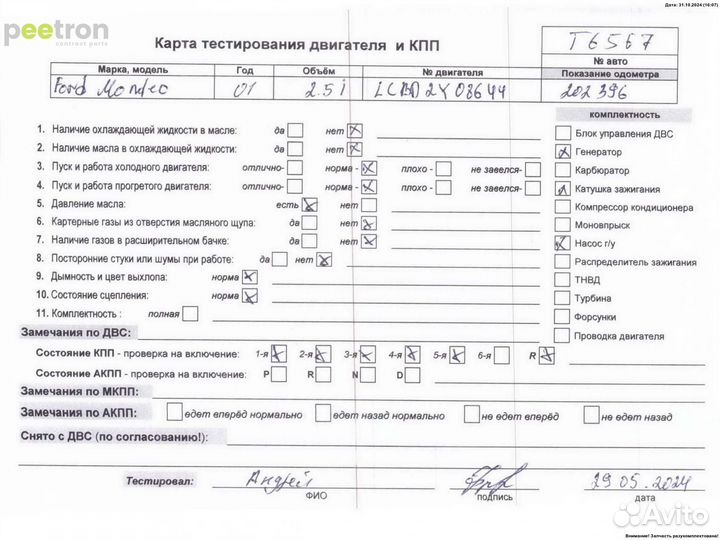 Дата: 31.10.2024 (16:07)
peetron
contract parts
Карта тестирования двигателя и КПП
T6567
№ авто
Марка, модель Год Объём № двигателя Показание одометра
Ford Mondeo 01 2.5i LCBD 2Y08644 202396
комплектность
1. Наличие охлаждающей жидкости в масле: да нет
Блок управления ДВС
2. Наличие масла в охлаждающей жидкости: да нет
Генератор
3. Пуск и работа холодного двигателя: отлично- норма - плохо - не завелся-
Карбюратор
4. Пуск и работа прогретого двигателя: отлично- норма - плохо - не завелся-
Катушка зажигания
5. Давление масла: есть нет
Компрессор кондиционера
6. Картерные газы из отверстия масляного щупа: да нет
Моновпрыск
7. Наличие газов в расширительном бачке: да нет
Насос г/у
8. Посторонние стуки или шумы при работе: да нет
Распределитель зажигания
9. Дымность и цвет выхлопа: норма
ТНВД
10. Состояние сцепления: норма
Турбина
11. Комплектность : полная
Форсунки
Замечания по ДВС:
Проводка двигателя
Состояние КПП - проверка на включение: 1-я 2-я 3-я 4-я 5-я 6-я R
Состояние АКПП - проверка на включение: P R N D
Замечания по МКПП:
Замечания по АКПП: едет вперёд нормально едет назад нормально не едет вперёд не едет назад
Снято с ДВС (по согласованию!):
Тестировал: Андрей 29.05.2024
ФИО подпись дата
Avito
Внимание! Запчасть разукомплектована!